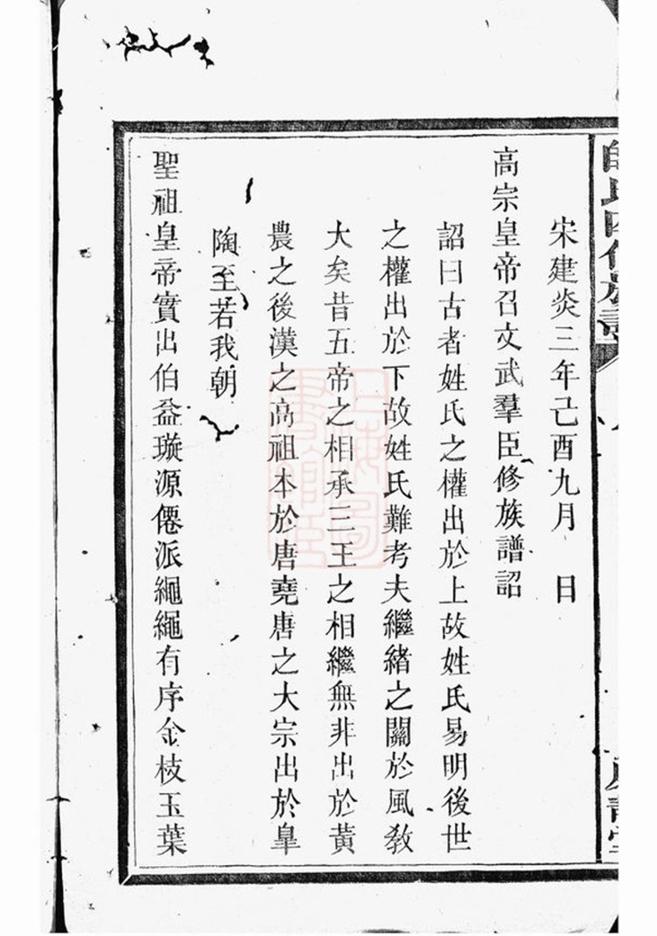 宋建炎三年己酉九月　日
高宗皇帝召文武羣臣修族譜詔
詔曰古者姓氏之權出於上故姓氏易明後世
之權出於下故姓氏難考夫繼緒之關於風敎
大矣昔五帝之相承三王之相繼無非出於黃
農之後漢之高祖本於唐堯唐之大宗出於臯
陶至若我朝
聖祖皇帝實出伯益璇源僊派繩繩有序金枝玉葉